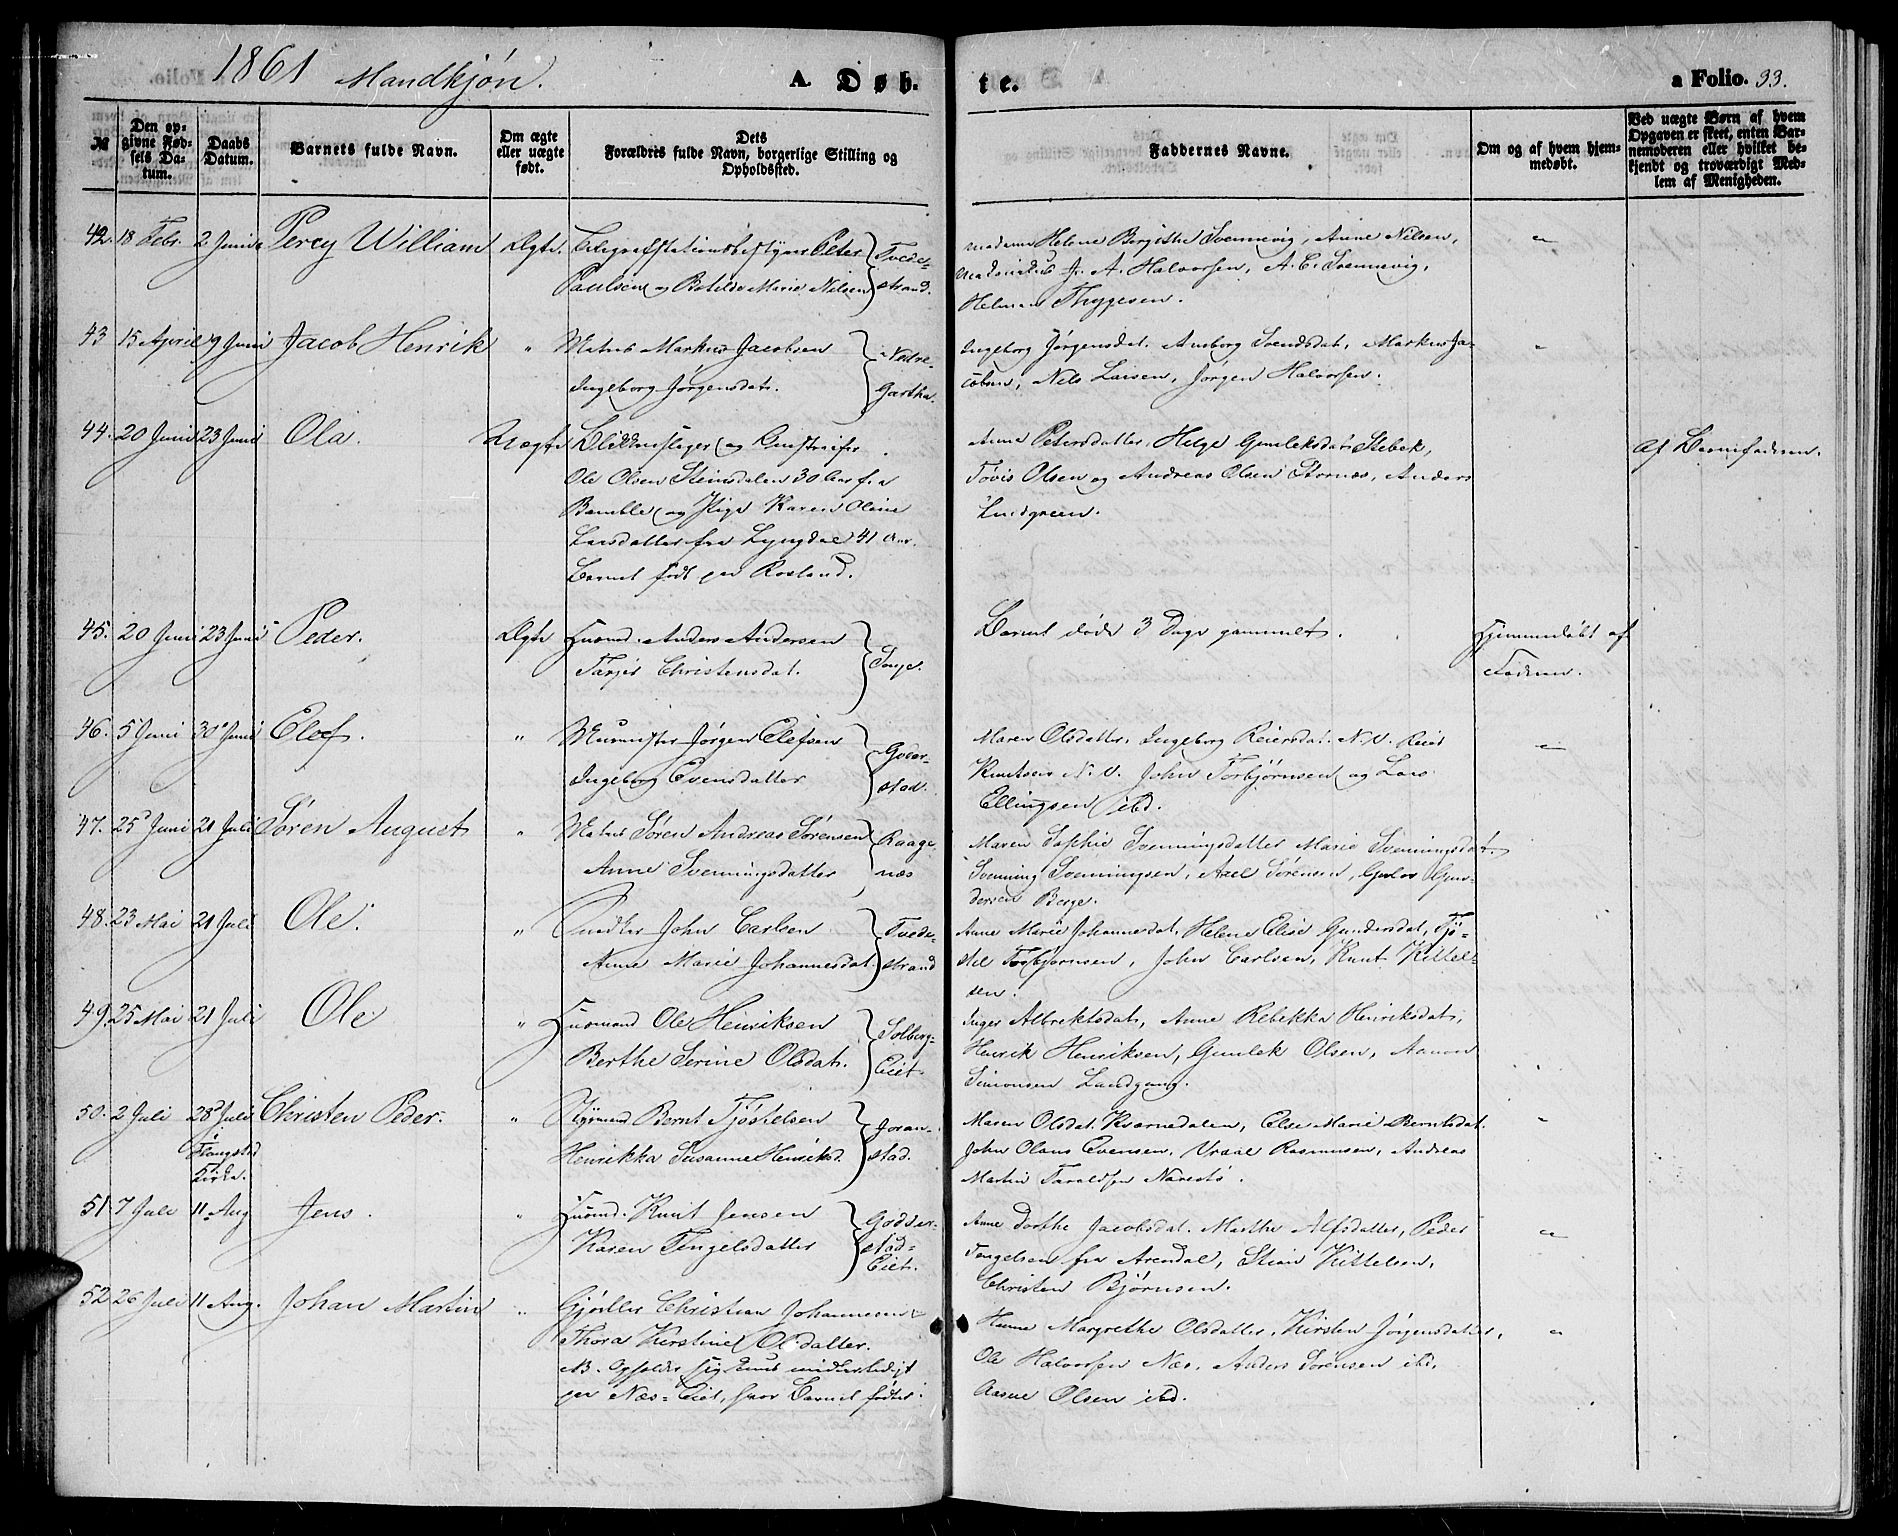 1861 Mandkjøn. A. Døb-
te. a Folio. 33.
№
Den op-
givne Fød-
sels Da-
tum.
Daabs
Datum.
Barnets fulde Navn.
Om ægte
eller uægte
født.
Dets
Forældres fulde Navn, borgerlige Stilling og
Opholdssted.
Faddernes Navne.
Om og af hvem hjem-
medøbt.
Ved uægte Børn af hvem
Opgaven er skeet, enten Bar-
nemoderen eller hvilket be-
kjendt og troværdigt Med-
lem af Menigheden.
42. 18 Febr. 2 Juni Percy William Ægte. Telegrafstationsbestyrer Peter
Paulsen og Bolde Marie Nilsen
Tvede-
strand.
Madame Helene Birgithe Svennevig, Anne Nilsen,
J. A. Halvorsen, A. C. Svennevig,
Thygesen.
43 15 April 9 Juni Jacob Henrik " Matros Markus Jacobsen
Ingeborg Jørgensdat.
Nedre-
Gartha.
Ingeborg Jørgensdat. Anborg Svendsdat, Markus Ja-
cobsen, Nils Larsen, Jørgen Halvorsen.
44. 20 Juni 23 Juni Ola. Uægte Blikkenslager og Omstreifer
Ole Olsen Steinsdalen 30 Aar fra
Bamble og Pige Karen Oline
Larsdatter fra Lyngdal 41 Aar.
Barnet født paa Rosland.
Anne Petersdatter, Helge Gunleksdat. Stebek,
Tøvis Olsen og Andreas Olsen Stornæs, Anders
Lindgreen.
Af Barnefaderen.
45. 20 Juni 23 Juni Peder. Ægte Husmd. Anders Andersen
Tarjer Christensdat.
Songe.
Barnet døde 3 Dage gammelt.
Hjemmedøbt af
Faderen.
46. 5 Juni 30 Juni Elef. " Murmester Jørgen Elefsen
Ingeborg Evensdatter
Goder-
stad.
Maren Olsdatter, Ingeborg Reiersdat. N. V. Reier
Knutsen N. V. John Torbjørnsen og Lars
Ellingsen ibd.
47. 25 Juni 21 Juli Søren August " Matros Søren Andreas Sørensen
Anne Svenningsdatter
Raage-
næs
Maren Sophie Svenningsdatter Marie Svenningsdat.
Svenning Svenningsen, Axel Sørensen, Gun-
dersen Berge.
48. 23 Mai 21 Juli Ole. " Snedker John Carlsen
Anne Marie Johannesdat.
Tvede-
strand
Anne Marie Johannesdat, Helene Elise Gundersdat, Tjø-
stel Torbjørnsen, John Carlsen, Knut Kittel-
sen.
49. 25 Mai 21 Juli Ole " Husmand Ole Henriksen
Berthe Serine Olsdat.
Solberg-
Eiet.
Inger Albrektsdat, Anne Rebekka Henriksdat,
Henrik Henriksen, Gunlek Olsen, Aanon
Simonsen Landgang.
50. 2 Juli 28 Juli Christen Peder. " Styrmand Bernt Tjøstelsen
Flangstad
Kirke.
Henrikka Susanne Henriksd.
Goran-
stad.
Maren Olsdat. Kvarnedalen, Else Marie Berntsdat.
John Olaus Evensen, Rasmusen, Andreas
Martin Taraldsen Narestø.
51. 7 Juli 11 Aug Jens. " Husmd. Knut Jensen
Karen Tengelsdatter
Godder-
stad-
Eiet.
Anne Dorthe Jacobsdat. Marthe Alfsdatter, Peder
Tengelsen fra Arendal, Stian Kittelsen,
Christen Bjørnsen.
52 26 Juli 11 Aug. Johan Martin " Gjørtler Christian Johannesen &
Thora Kirstine Olsdatter.
NB. Opholder sig kuns midlertidigt
paa Næs-Eiet, hvor Barnet fødtes.
Hanne Margrethe Olsdatter, Kirsten Jørgensdatter,
Ole Halvorsen Næs, Anders Sørensen ibd,
Aasne Olsen ibd.